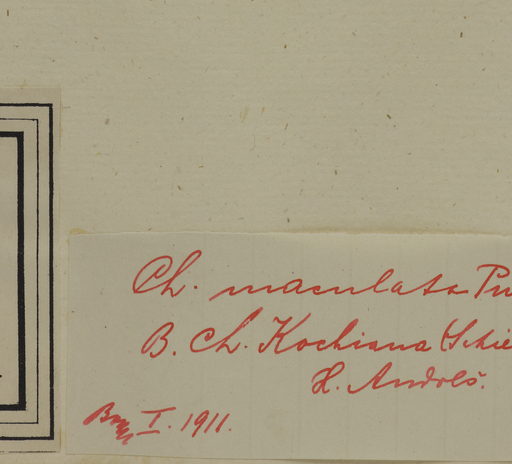 Ch. maculata Pu
B. Ch. Kochiana (Schie
H. Andres.
Bonn, I. 1911.